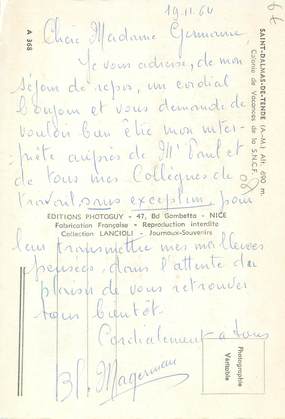 19.11.64
Chère Madame Germaine,
Je vous adresse, de mon
séjour de repos, un cordial
bonjour et vous demande de
vouloir bien être mon inter-
prète auprès de Mr Paul et
de tous mes Collègues de
travail, sans exception, pour
EDITIONS PHOTOGUY - 47, Bd Gambetta - NICE
Fabrication Française - Reproduction interdite
Collection LANCIOLI - Journaux-Souvenirs
leur transmettre mes meilleures
pensées, dans l'attente du
plaisir de vous retrouver
tous bientôt.
Cordialement à tous
Magerman
A 368
SAINT-DALMAS-DE-TENDE (A.-M.) Alt. 690 m.
Colonie de Vacances de la S.N.C.F.
Photographie
Véritable